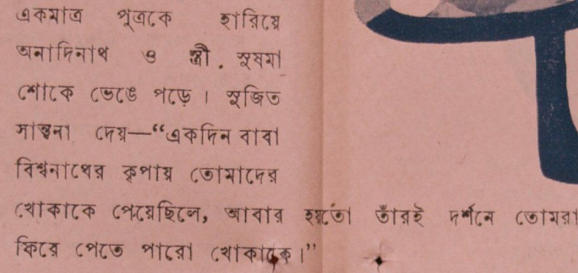 একমাত্র পুত্রকে হারিয়ে
অনাদিনাথ ও স্ত্রী . সুষমা
শোকে ভেঙে পড়ে । সুজিত
সান্ত্বনা দেয়—“একদিন বাবা
বিশ্বনাথের কৃপায় তোমাদের
খোকাকে পেয়েছিলে, আবার হয়তো তাঁরই দর্শনে তোমরা
ফিরে পেতে পারো খোকাকে।”